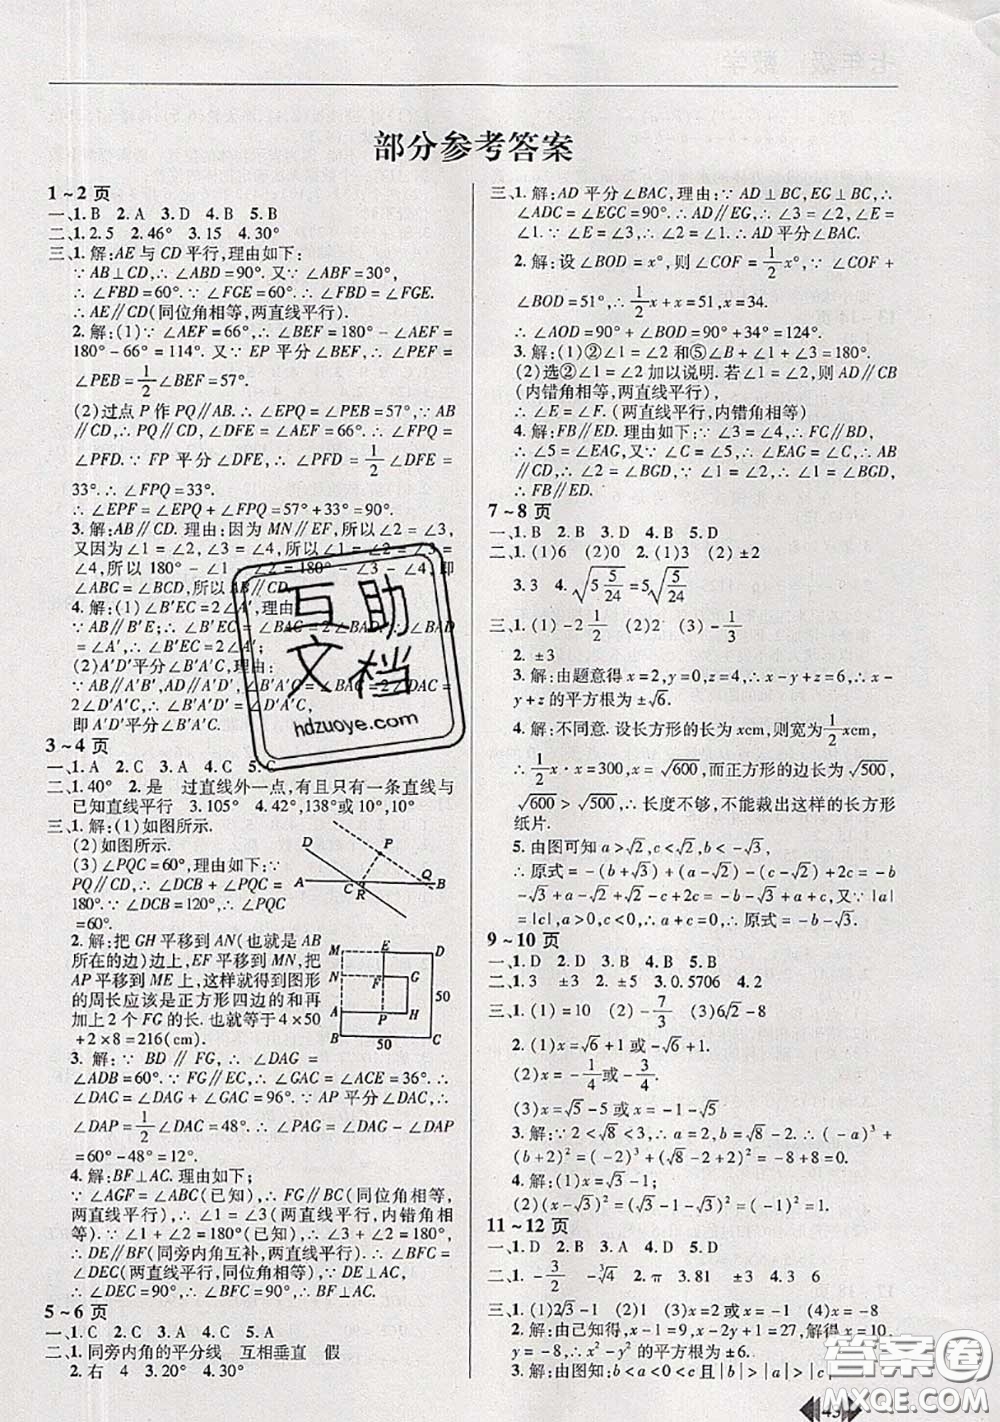 七年级 数学
部分参考答案
1~2 页
一、1. B 2. A 3. D 4. B 5. B
二、1. 2.5 2. 46° 3. 15 4. 30°
三、1. 解:AE 与 CD 平行,理由如下:
∵ AB⊥CD,∴ ∠ABD=90°. 又∵ ∠ABF=30°,
∴ ∠FBD=60°. ∵ ∠FGE=60°. ∴ ∠FBD=∠FGE.
∴ AE∥CD(同位角相等,两直线平行).
2. 解:(1)∵ ∠AEF=66°,∴ ∠BEF=180°-∠AEF=
180°-66°=114°. 又∵ EP 平分∠BEF,∴ ∠PEF=
∠PEB=1/2∠BEF=57°.
(2)过点 P 作 PQ∥AB. ∴ ∠EPQ=∠PEB=57°,∵ AB
∥CD,∴ PQ∥CD,∠DFE=∠AEF=66°. ∴ ∠FPQ=
∠PFD. ∵ FP 平分∠DFE,∴ ∠PFD=1/2∠DFE=
33°. ∴ ∠FPQ=33°.
∴ ∠EPF=∠EPQ+∠FPQ=57°+33°=90°.
3. 解:AB∥CD. 理由:因为 MN∥EF,所以∠2=∠3,
又因为∠1=∠2,∠3=∠4,所以∠1=∠2=∠3=∠
4,所以 180°-∠1-∠2=180°-∠3-∠4,即
∠ABC=∠BCD,所以 AB∥CD.
4. 解:(1)∠B′EC=2∠A′,理由
∵ AB∥B′E;∴ ∠B′EC=∠BAC=2∠BAD,
=∠A′,∴ ∠B′EC=2∠A′.
(2)A′D′平分∠B′A′C,理由:
∵ AB∥A′B′,AD∥A′D′,∴ ∠B′A′C=∠BAC=2∠DAC=
2∠D′A′C,∴ ∠B′A′D′=∠D′A′C,
即 A′D′平分∠B′A′C.
3~4 页
一、1. A 2. C 3. A 4. C 5. C
二、1. 40° 2. 是 过直线外一点,有且只有一条直线与
已知直线平行 3. 105° 4. 42°,138°或 10°,10°
三、1. 解:(1)如图所示.
(2)如图所示.
(3)∠PQC=60°,理由如下:∵
PQ∥CD,∴ ∠DCB+∠PQC=
180°. ∵ ∠DCB=120°,∴ ∠PQC
=60°.
D P A C R Q B
2. 解:把 GH 平移到 AN(也就是 AB
所在的边)边,EF 平移到 MN,把
AP 平移到 ME 上,这样就得到图形
的周长应该是正方形四边的和再
加上 2 个 FG 的长. 也就等于 4×50
+2×8=216(cm).
M E D N F G A P H B 50 C 50
3. 解:∵ BD∥FG,∴ ∠DAG=
∠ADB=60°. ∵ FG∥EC,∴ ∠GAC=∠ACE=36°. ∴
∠DAC=∠DAG+∠GAC=96°. ∵ AP 平分∠DAC,∴
∠DAP=1/2∠DAC=48°. ∴ ∠PAG=∠DAG-∠DAP
=60°-48°=12°.
4. 解:BF⊥AC. 理由如下;
∵ ∠AGF=∠ABC(已知),∴ FG∥BC(同位角相等,
两直线平行),∴ ∠1=∠3(两直线平行,内错角相
等). ∵ ∠1+∠2=180°(已知),∴ ∠3+∠2=180°,
∴ DE∥BF(同旁内角互补,两直线平行),∴ ∠BFC=
∠DEC(两直线平行,同位角相等). ∵ DE⊥AC,∴
∠DEC=90°,∴ ∠BFC=90°,∴ BF⊥AC.
5~6 页
一、1. C 2. C 3. A 4. C 5. A
二、1. 同旁内角的平分线 互相垂直 假
2. 右 4 3. 20° 4. 30°
三、1. 解:AD 平分∠BAC,理由:∵ AD⊥BC,EG⊥BC,∴
∠ADC=∠EGC=90°. ∴ AD∥EG,∴ ∠3=∠2,∠E=
∠1. ∵ ∠E=∠3,∴ ∠1=∠2. ∴ AD 平分∠BAC.
2. 解:设∠BOD=x°,则∠COF=1/2x°,∵ ∠COF+
∠BOD=51°,∴ 1/2x+x=51,x=34.
∴ ∠AOD=90°+∠BOD=90°+34°=124°.
3. 解:(1)②∠1=∠2 和⑤∠B+∠F+∠1=180°.
(2)选②∠1=∠2 加以说明. 若∠1=∠2,∴ AD∥CB
(内错角相等,两直线平行),
∴ ∠E=∠F. (两直线平行,内错角相等)
4. 解:FB∥ED. 理由如下;∵ ∠3=∠4,∴ FC∥BD,
∴ ∠5=∠EAG,又∵ ∠C=∠5,∴ ∠C=∠EAG,∴ AB
∥CD,∴ ∠2=∠BGD,∵ ∠1=∠2,∴ ∠1=∠BGD,
∴ FB∥ED.
7~8 页
一、1. B 2. B 3. D 4. B 5. D
二、1. (1)6 (2)0 2. (1)3 (2)±2
3. 3 4. √(5 5/24)=5√(5/24)
三、1. (1)0 (2)-1/2 (2)2 (3)-1/3
2. ±3
3. 解:由题意得 x=2,y=0,z=4. ∴ x-y+z=6,∴ x-
y+z 的平方根为±√6.
4. 解:不同意. 设长方形的长为 xcm,则宽为1/2xcm,
∴ 1/2x·x=300,x=√600,而正方形的边长为√500,
√600>√500,∴ 长度不够,不能裁出这样的长方形
纸片.
5. 由图可知 a>√2,c<√2,b<-√3,
∴ 原式=-(b+√3)+(√2-c)-(√2-a)-2c=-b-
√3+a+√2-√2-c+2c=-b-√3+a+c,又∵ |a|
=|c|,a>0,c<0,∴ a+c=0,∴ 原式=-b-√3.
9~10 页
一、1. D 2. D 3. B 4. B 5. B
二、1. 3 ±3 2. ±5 3. 0.5706 4. 2
三、1. (1)=10 (2)=-7/3 (3)6√2-3
2. (1)x=√6+1 或-√6+1.
(2)x=-1/4 或-3/4.
(3)x=√5-5 或 x=-1-√5
3. 解:∵ 2<√8<3,∴ a=2,b=√8-2,∴ (-a)³+
(b+2)²=(-2)³+(√8-2+2)²=-8+8=0.
4. 解:(1)x=√3-1;
(2)(x-√3)²=(√3-1-√3)²=(-1)²=1.
11~12 页
一、1. D 2. B 3. D 4. D 5. C
二、1. -3/2 -∛4 2. π 3. 81 ±3 4. 13
三、1. (1)2√3-1 (2)1 (3)x=2 或 x=-1 (4)x=-8
2. 解:由已知得,x-1=9,x-2y+1=27. 解得 x=10,
y=-8. ∴ x²-y²=36. ∴ x²-y²的平方根为±6.
3. 解:由图知:a<b<0<c 且|b|>|c|,|a|>
互助文档
hdzuoye.com
答案圈
MXQE.COM
43